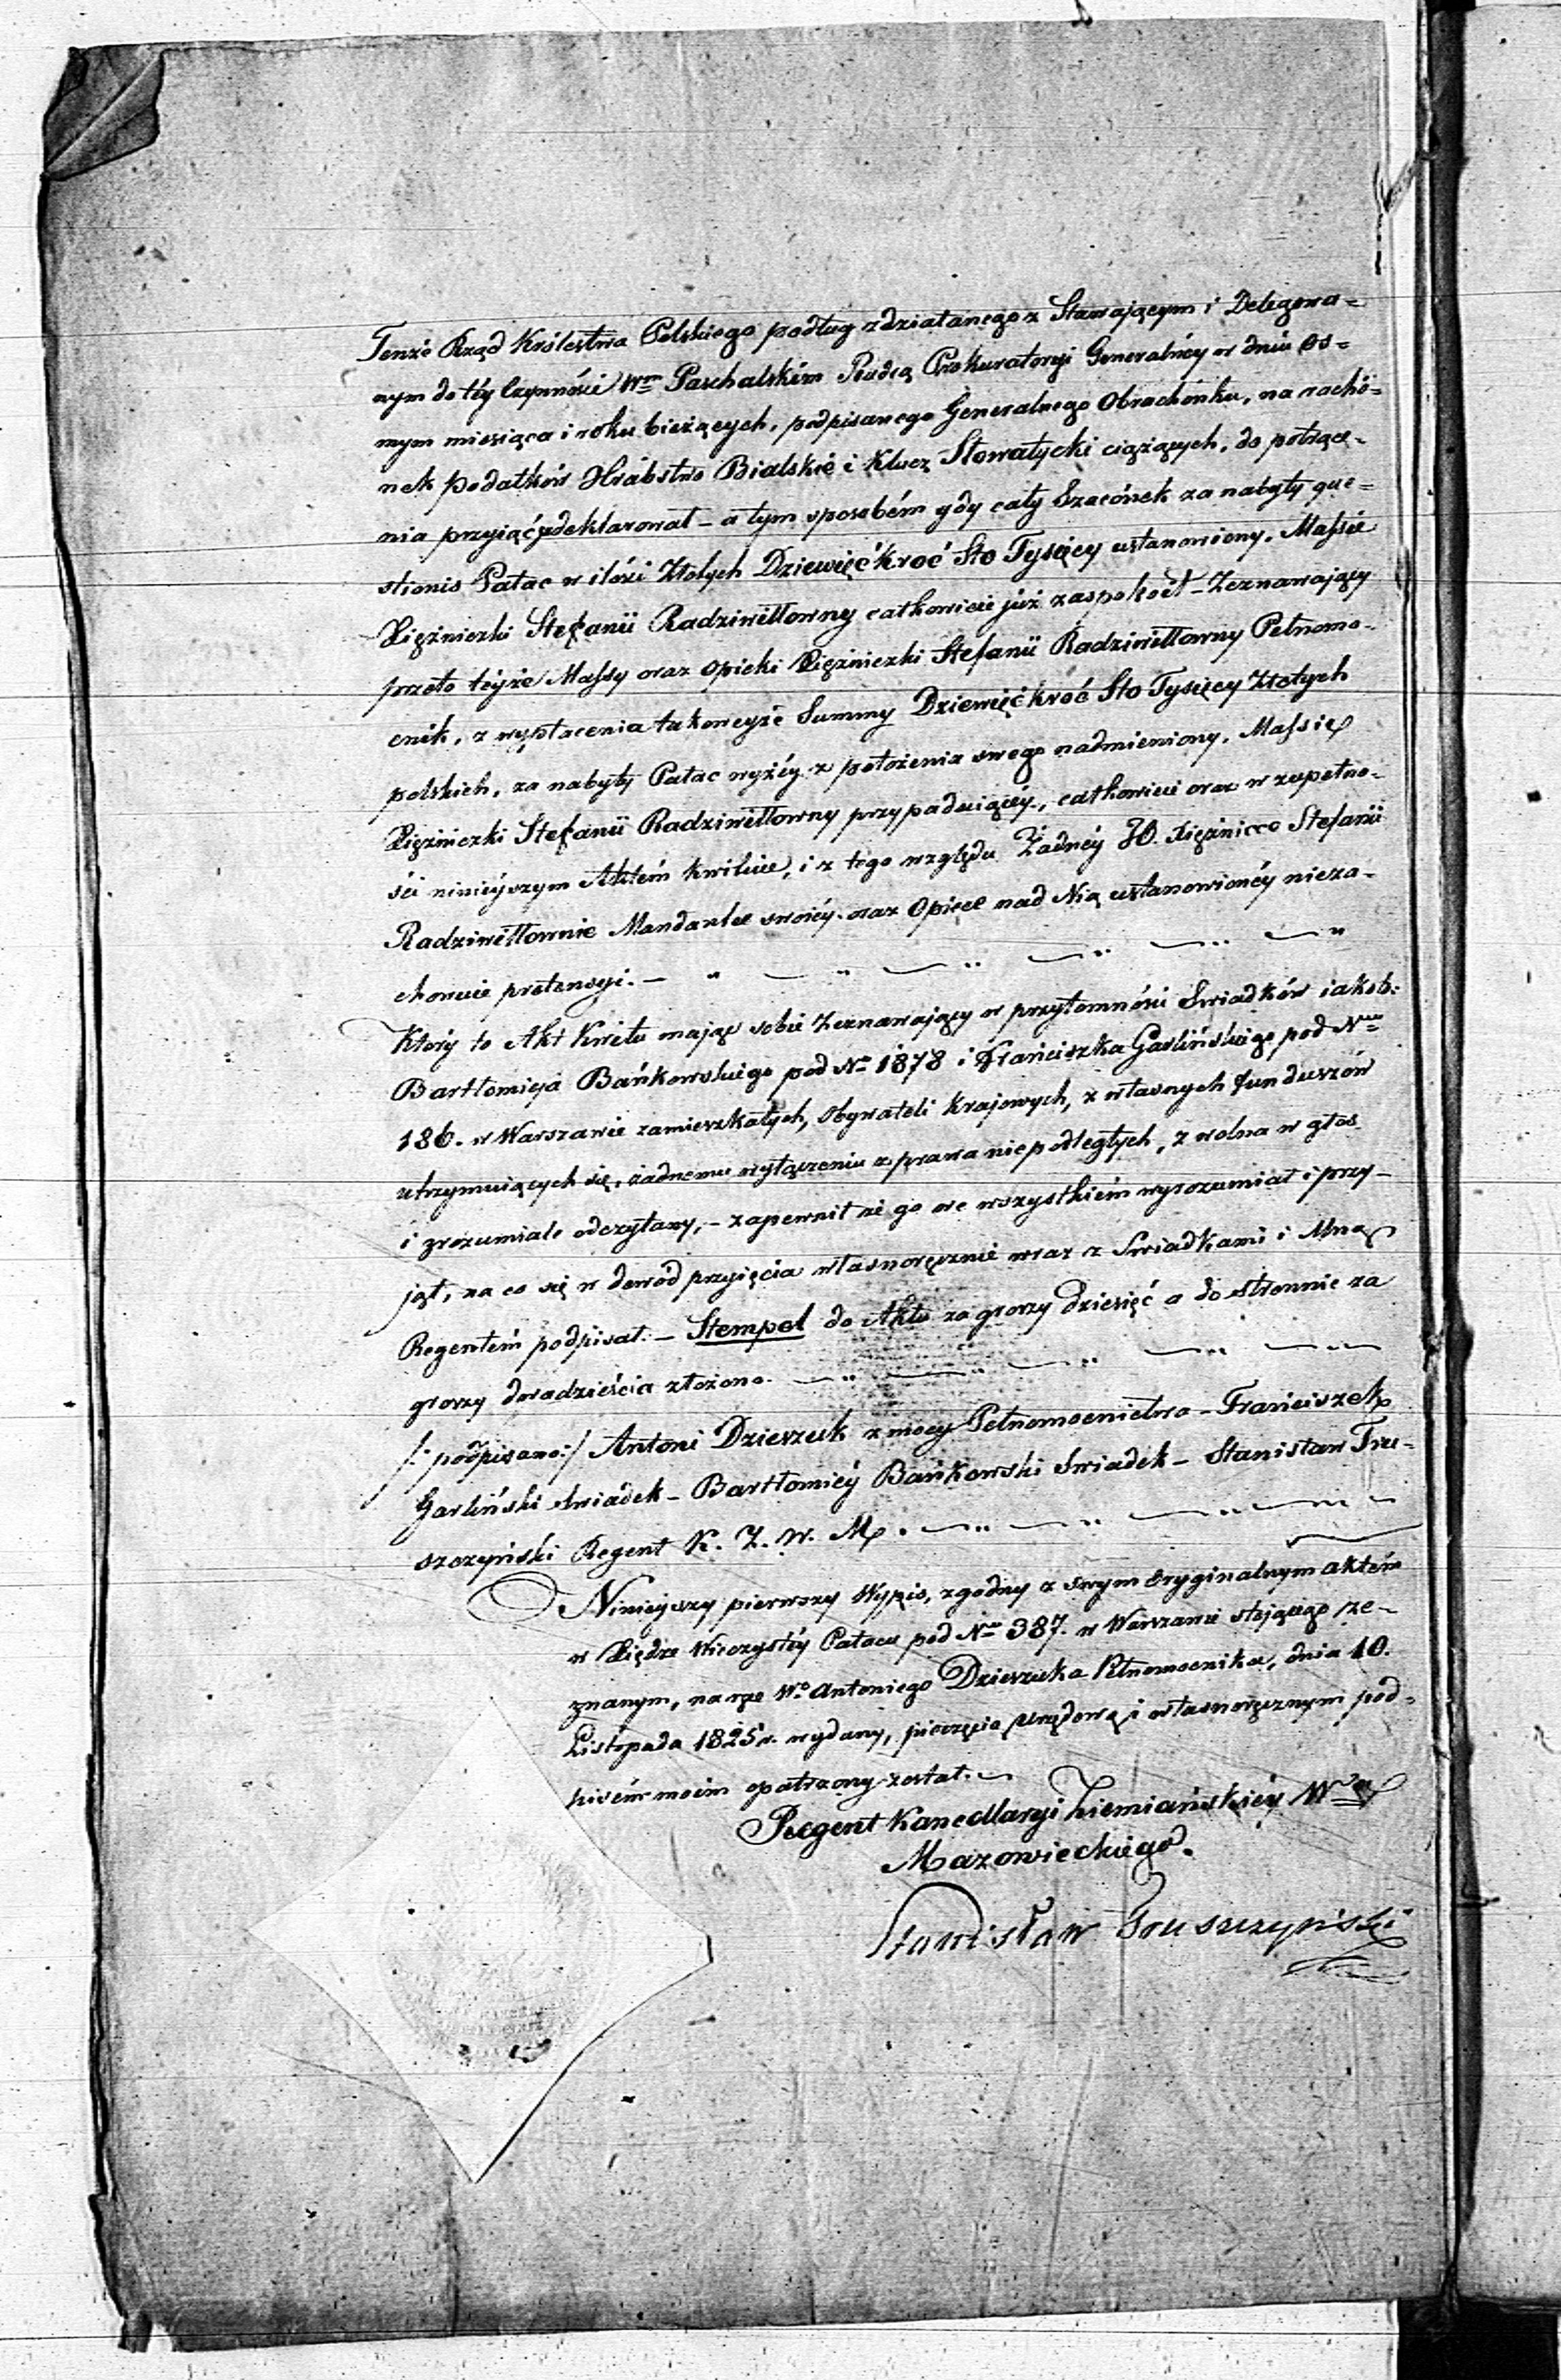 Tenże Rząd Królestwa Polskiego podług zdziałanego z Stawającym i Delegowa=
nym do téy Czynności Wm Paschalskim Radcą Prokuratoryi Generalnéy w dniu ós=
mym miesiąca i roku bieżących, podpisanego Generalnego Obrachónku, na rachó=
nek podatków Hrabstwo Bialskie i Klucz Sławatycki ciążących, do potrące-
nia przyiąć zadeklarował – a tym sposobém gdy cały Szacónek za nabyty que=
stionis Pałac w ilości Złotych Dziewięćkroć Sto Tysięcy ustanowiony, Massie
Xiężniczki Stefanii Radziwiłłowny całkowicie już zaspokoił – Zeznawający
przeto téyże Massy oraz Opieki Xiężniczki Stefanii Radziwiłłowny Pełnomo-
cnik, z wypłacenia takoweyże Summy Dziewięćkroć Sto Tysięcy Złotych
polskich, za nabyty Pałac wyżéy z położenia swego nadmieniony, Massie
Xiężniczki Stefanii Radziwiłłowny przypadaiącéy, całkowicie oraz w zupełno-
ści ninieyszym Aktém kwituie, i z tego względu Żadnéy JO. Xiężnicce Stefanii
Radziwiłłownie Mandantce swoiéy oraz Opiece nad Nią ustanowionéy nieza-
chowuie pretensyi. –
Który to Akt Kwitu mając sobie Zeznawający w przytomności Swiadków iakoto:
Bartłomieja Bańkowskiego pod No 1878 i Franciszka Garlińskiego pod Nrem
186. w Warszawie zamieszkałych, Obywateli Krajowych, z własnych funduszów
utrzymuiących się, żadnemu wyłączeniu z prawa niepodległych, z wolna w głos
i zrozumiale odczytany, – zapewnił że go we wszystkiém wyrozumiał i przy-
jął, na co się w dowód przyięcia własnoręcznie wraz z Swiadkami i Mną
Regentém podpisał. – Stempel do Aktu za groszy dziesięć a do stronnic za
groszy dwadzieścia złożono.
/: podpisano:/ Antoni Dzieszuk z mocy Pełnomocnictwa – Franciszek
Garliński Swiadek – Bartłomiéy Bańkowski Swiadek – Stanisław Tru-
szczyński Regent K. Z. W. M.
Ninieyszy pierwszy Wypis, zgodny z swym oryginalnym aktém
w Xiędze Wieczystéy Pałacu pod Nrem 387. w Warszawie stojącego ze-
znanym, na rzecz Wo Antoniego Dzieszuka Pełnomocnika, dnia 10.
Listopada 1825 r. wydany, pieczęcią urzędową i własnoręcznym pod-
pisém moim opatrzony został.
Regent Kancellaryi Ziemiańskiéy Wdztwa
Mazowieckiego.
Stanisław Truszczyński